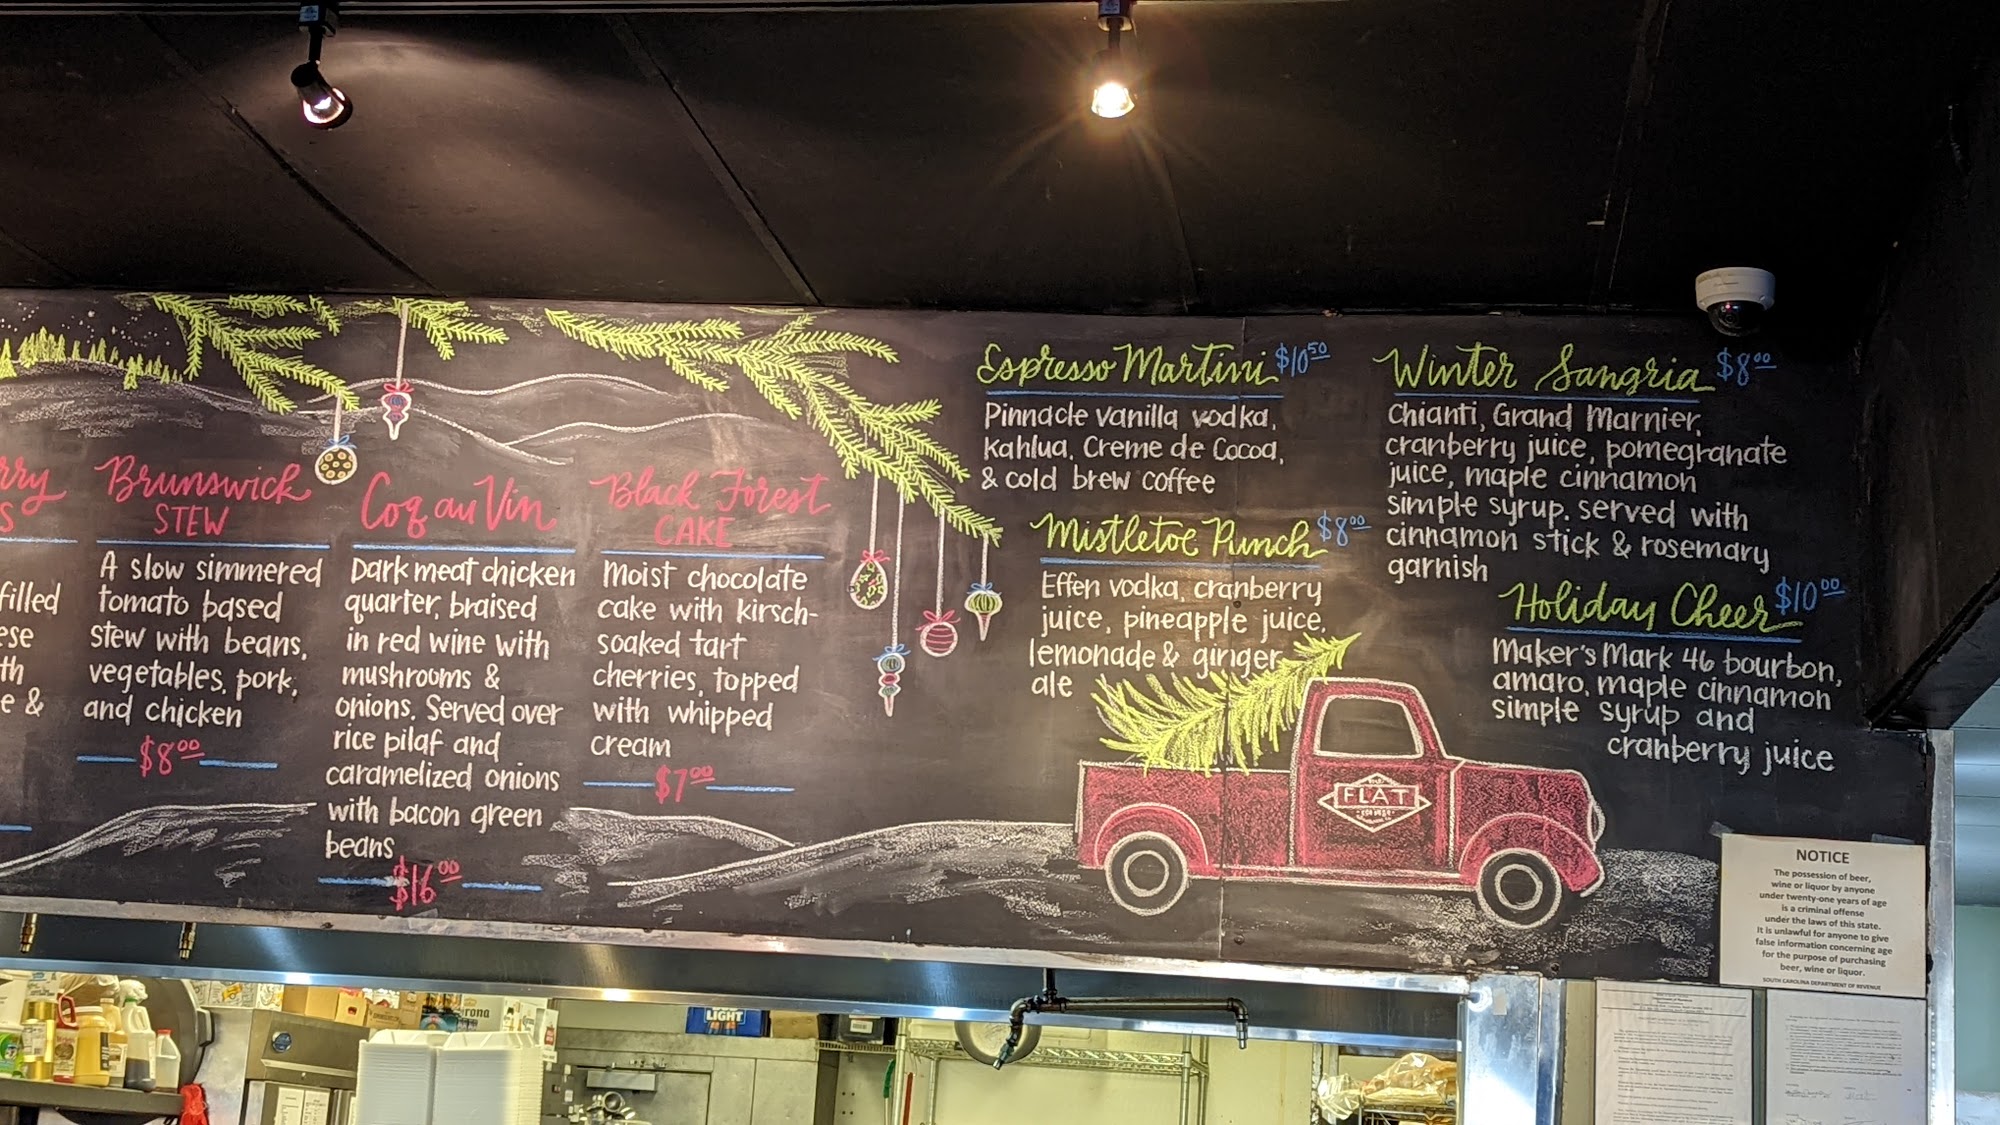 rry
S
filled
ese
th
e &
Brunswick
STEW
A slow simmered
tomato based
stew with beans,
vegetables, pork,
and chicken
$8.00
Coq au Vin
Dark meat chicken
quarter, braised
in red wine with
mushrooms &
onions. Served over
rice pilaf and
caramelized onions
with bacon green
beans
$16.00
Black Forest
CAKE
Moist chocolate
cake with kirsch-
soaked tart
cherries, topped
with whipped
cream
$7.00
Espresso Martini $10.50
Pinnacle vanilla vodka,
Kahlua, Creme de Cocoa,
& cold brew coffee
Mistletoe Punch $8.00
Effen vodka, cranberry
juice, pineapple juice,
lemonade & ginger
ale
Winter Sangria $8.00
Chianti, Grand Marnier,
cranberry juice, pomegranate
juice, maple cinnamon
simple syrup. served with
cinnamon stick & rosemary
garnish
Holiday Cheer $10.00
Maker's Mark 46 bourbon,
amaro, maple cinnamon
simple syrup and
cranberry juice
FLAT
NOTICE
The possession of beer,
wine or liquor by anyone
under twenty-one years of age
is a criminal offense
under the laws of this state.
It is unlawful for anyone to give
false information concerning age
for the purpose of purchasing
beer, wine or liquor.
SOUTH CAROLINA DEPARTMENT OF REVENUE
LIGHT
orona